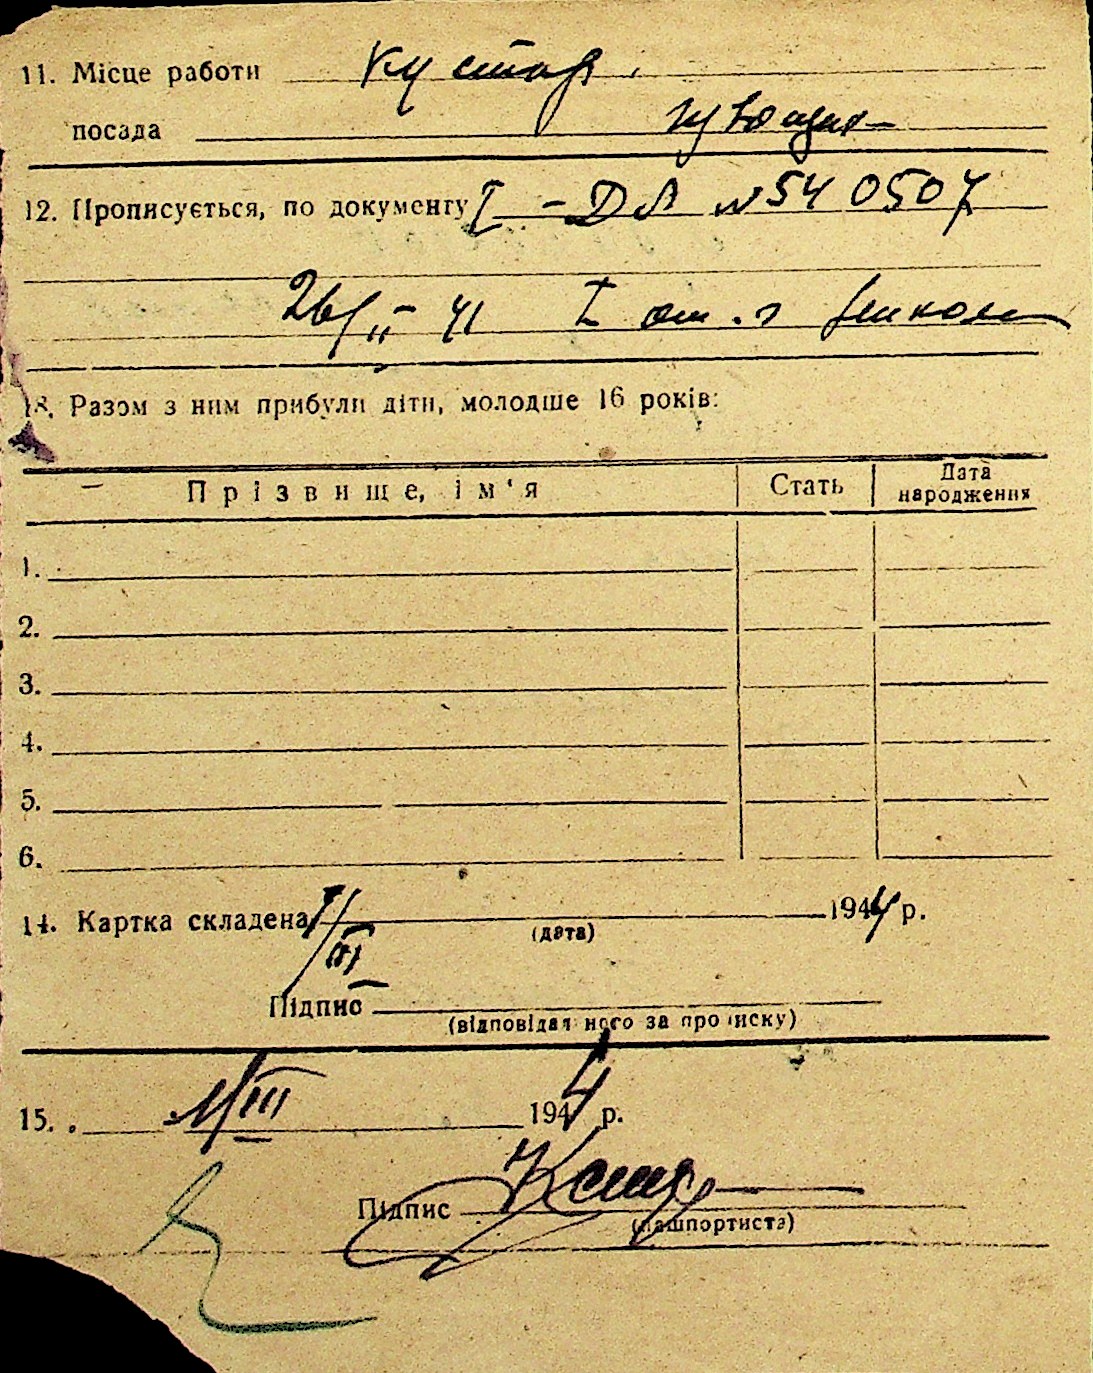 11. Місце работи кустар
посада
12. Прописується, по документу I - ДЛ № 540507
26/II - 41 I от.
13. Разом з ним прибули діти, молодше 16 років:
Прізвище, ім'я Стать Дата народження
1.
2.
3.
4.
5.
6.
14. Картка складена 1944 р.
(дата)
Підпис
(відповідального за прописку)
15. 1/III 1944 р.
Підпис
(пашпортиста)